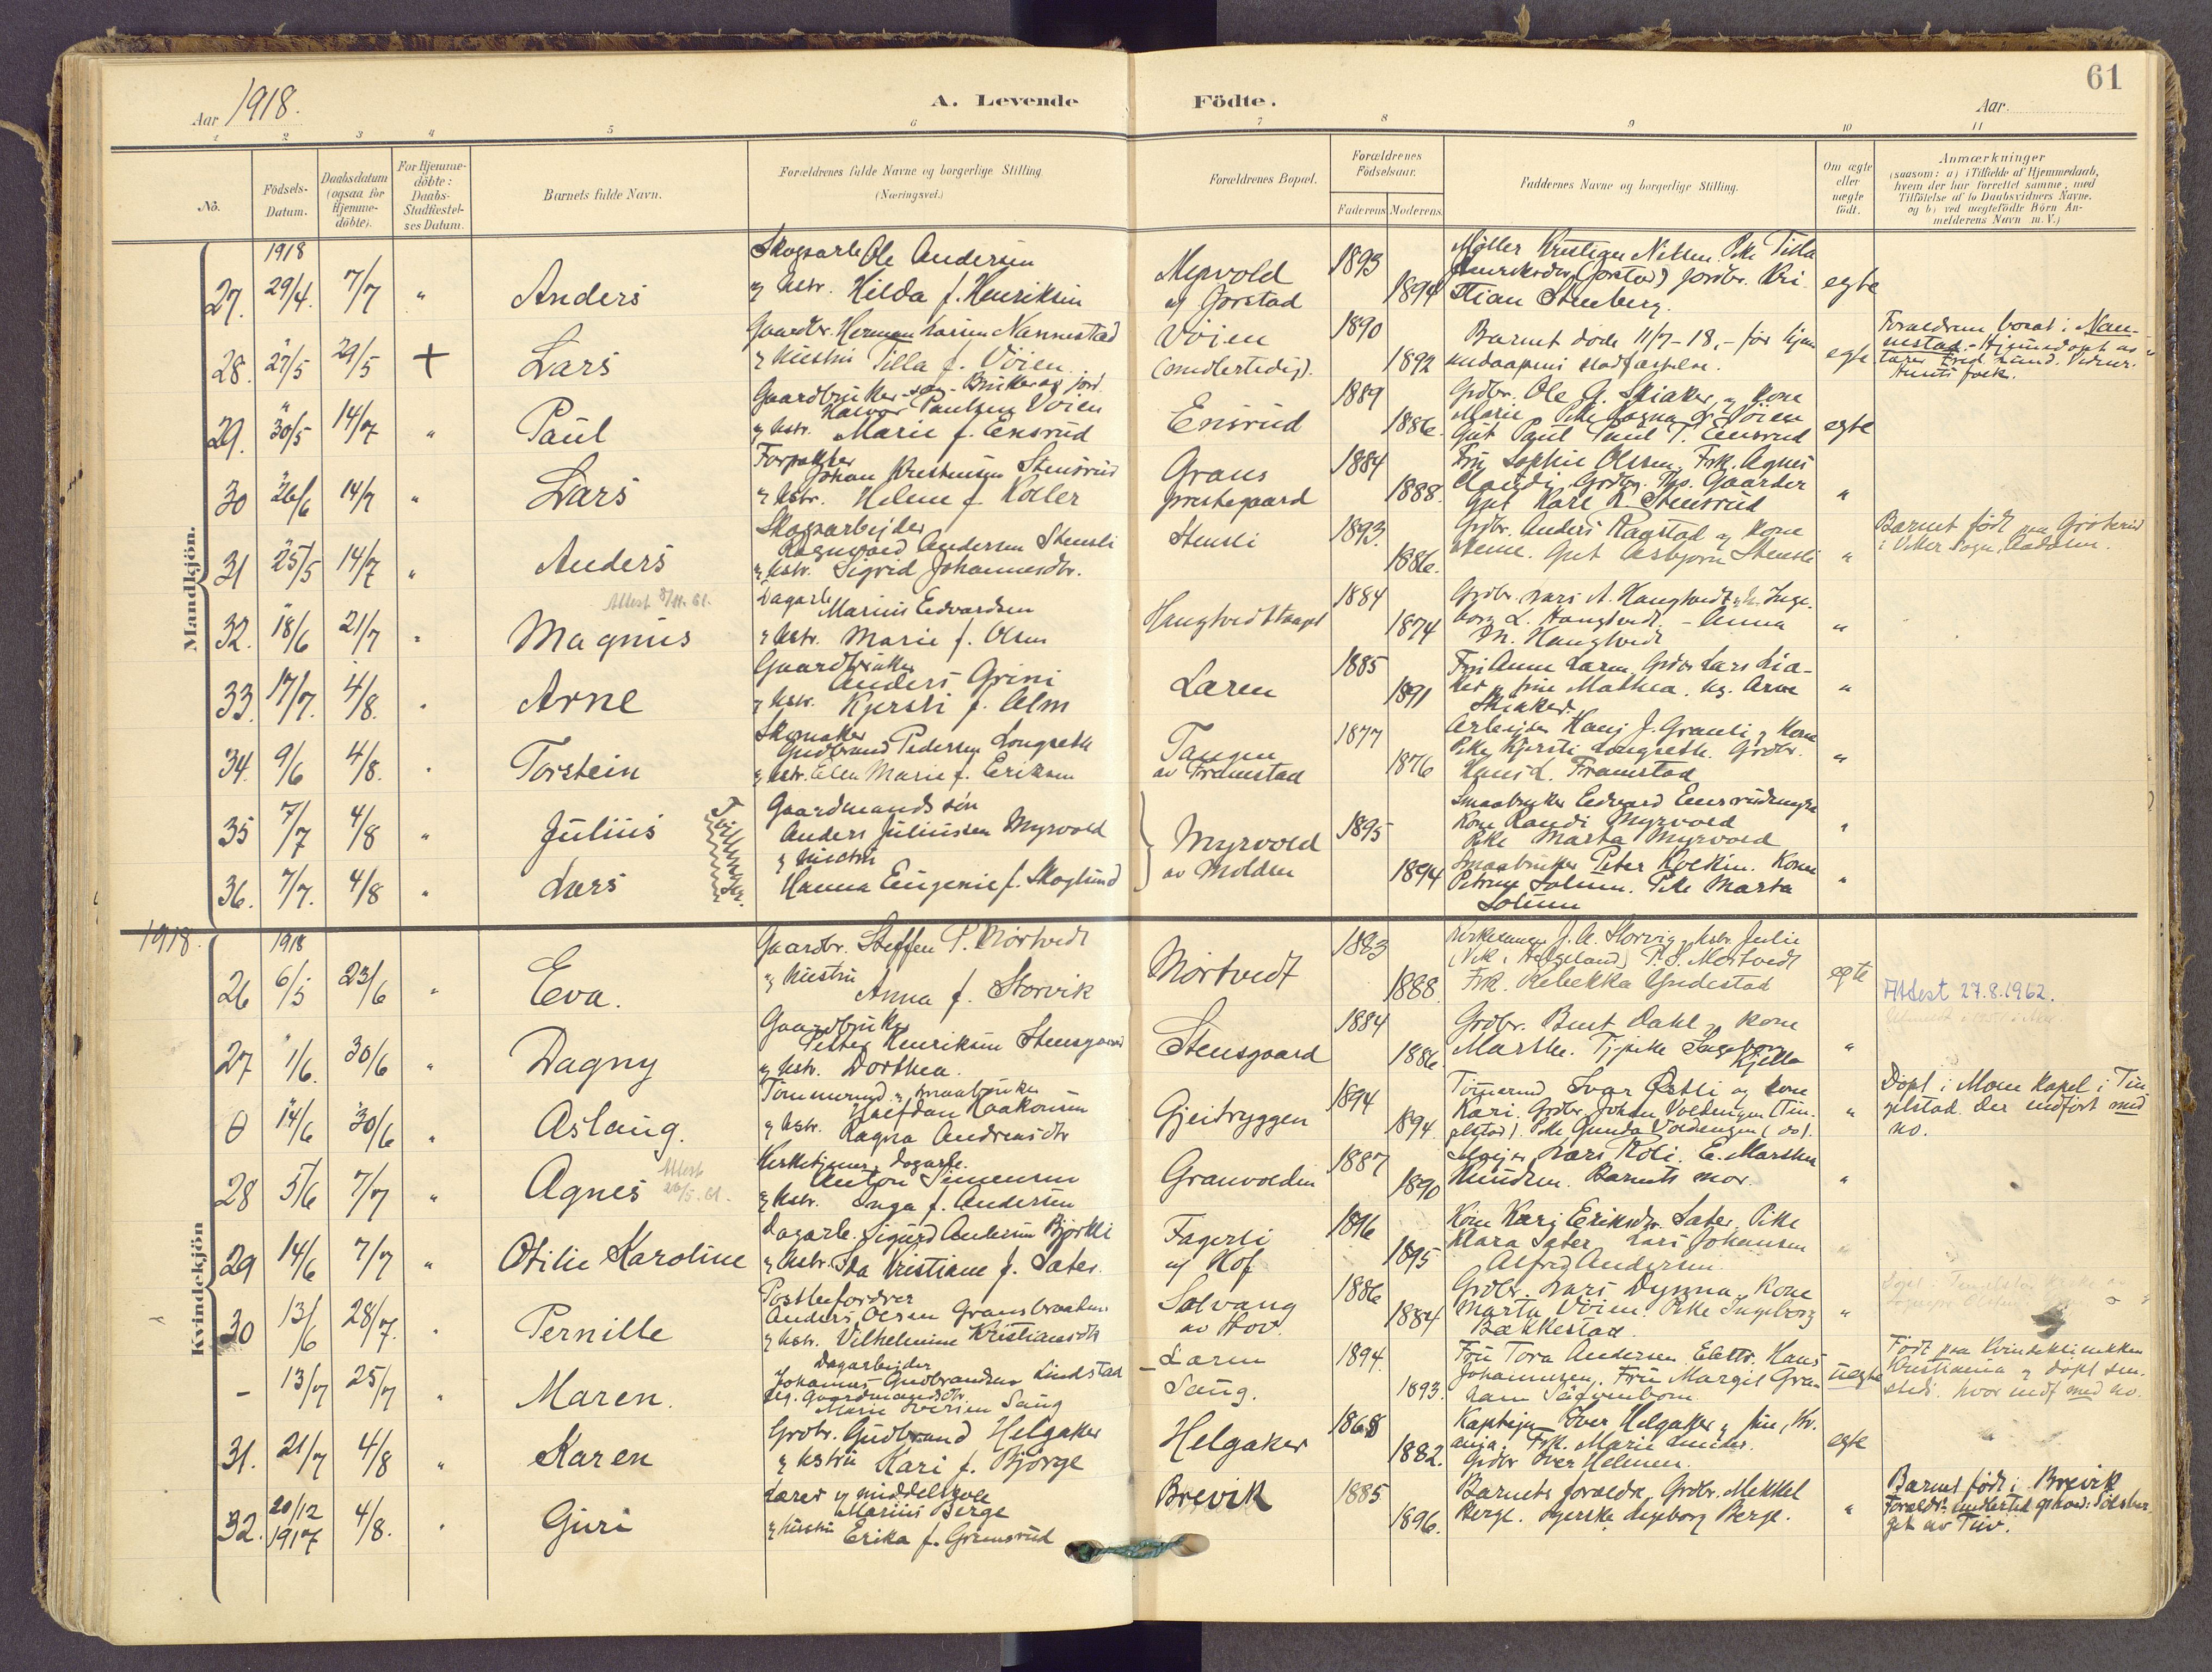 61
Aar 1918.
A. Levende Födte.
Aar.
1 2 3 4 5 6 7 8 9 10 11
No.
Födsels-Datum.
Daabsdatum (ogsaa for Hjemme-döbte).
For Hjemme-döbte: Daabs-Stadfæstel-ses Datum.
Barnets fulde Navn.
Forældrenes fulde Navne og borgerlige Stilling (Næringsvei.)
Forældrenes Bopæl.
Forældrenes Födselsaar.
Faderens Moderens
Faddernes Navne og borgerlige Stilling.
Om ægte eller uægte födt.
Anmærkninger
(saasom: a) i Tilfælde af Hjemmedaab,
hvem der har forrettet samme, med
Tilföielse af to Daabsvidners Navne.
og b) ved uægtefödte Börn An-
melderens Navn m. V.)
Mandkjön.
1918
27. 29/4. 7/7 " Anders
Skogsarb Ole Andersen
og hstr. Hilda f. Henriksen
Myrvold
af Jorstad
1893
1894
Møller Kristian Nilsen. Pike Tilla
Henriksdtr (Jorstad) jordbr. Kri-
stian Stenberg.
egte
28. 27/5 29/5 + Lars
Gaardbr. Herman Larsen Nannestad
og hustru Tilla f. Vöien
Vöien
(midlertidig).
1890
1892
Barnet döde 11/7-18, - för hjem
medaapens stadfæstelse.
egte
Forældrene bosat i Nan-
nestad. - Hjemmedöpt av
29. 30/5 14/7 " Paul
Gaardbruker - søn - Bruker av jord
Halvor Paulsen Vöien
og hstr. Marie f. Ensrud
Ensrud
1889
1886.
Grdbr. Ole G. Skiaker og kone
Marie Pike Ragna L. Vöien
Gut Paul P. Ensrud
egte
30 26/6 14/7 " Lars
Forpakter
Johan Kristensen Stensrud
og hstr. Helene f. Koller
Grans
prestegaard
1884
1888.
Fru Sophie Olsen, Frk. Agnes
Gaarder
Gut Karl K. Stensrud
"
31 25/5 14/7 " Anders
Skogsarbeider
Ragnvald Andersen Stensli
og hstr. Sigrid Johannesdtr.
Stensli
1893.
1886.
Grdbr. Anders Ragstad og kone
Gut Asbjörn Stensli
"
Barnet född paa
i Viker Sogn, Aadalen.
Attest 8/11. 61.
32. 18/6 21/7 " Magnus
Dagarb
Marius Edvardsen
og hstr. Marie f. Olsen
Haugtvedthaugen
1884
1874
Grdbr. Lars A. Haugtvedt, h. Inge-
borg L. Haugtvedt. - Anna
M. Haugtvedt
"
33. 17/7. 4/8. " Arne
Gaardbruker
Anders Grini
og hstr. Kjersti f. Alm
Laren
1885
1891
Fru Anne Laren, Grdbr Lars Lia-
ker og frue Mathea. ug. Arne
Skiaker.
"
34. 9/6 4/8. " Torstein
Skomaker
Gudbrand Pedersen Longseth
og hstr. Elen Marie f. Eriksen
Tangen
av Framstad
1877
1876
Arbeider Hans J. Granli og kone
Pike Kjersti Longseth. Grdbr.
Hans L. Framstad
"
35 7/7 4/8 " Julius
Tvillinger.
Gaardmandssön
Anders Juliussen Myrvold
og hustru
Hanna Eugenie f. Skoglund
Myrvold
av Molden
1895
1894
Smaabruker Edvard Ensrudmyra
Kone Randi Myrvold
Pike Marta Myrvold
"
36. 7/7. 4/8 " Lars
Smaabruker Peter Kolkin. Kone
Petrine Solum. Pike Marta
Solum
"
1918.
Kvindekjön
1918
26 6/5 23/6 " Eva.
Gaardbr. Steffen P. Mörtvedt
og hustru
Anna f. Storvik
Mörtvedt
1883
1888.
Kirkesanger J. A. Storvig, hstr. Julie
(Vik i Helgeland) P. S. Mörtvedt
Frk. Rebekka Gudestad
egte
Attest 27.8.1962.
27 1/6. 30/6 " Dagny
Gaardbruker
Petter Henriksen Stensgaard
og hstr. Dorthea.
Stensgaard
1884
1886
Grdbr. Bernt Dahl og kone
Marthe. Tj.pike Ingeborg
Kjella
"
0 14/6 30/6 " Aslaug.
Tömmermd. og smaabruker
Halfdan Haakonsen
og hstr. Ragna Andreasdtr
Gjeitryggen
1894
1894.
Tömmermd Ivar Østli og kone
Kari. Grdbr. Johan Voldengen (Tin-
gelstad). Pike Gunda Voldengen (do).
"
Döpt i Moen Kapel i Tin-
gelstad. Der indført med
no.
28 5/6 7/7 " Agnes
Attest
26/5-61.
Kirketjener, dagarb.
Anton Simensen
og hstr. Inga f. Andersen
Granvolden
1887
1890
Lars Roli. E. Marthea
Knudsen. Barnets mor.
"
29 14/6 7/7 " Otilie Karoline
Dagarb. Sigurd Andersen Bjørkli
og hstr. Ida Kristiane f. Sater.
Fagerli
af Hof
1896
1895
Kone Kari Eriksdtr. Sater. Pike
Klara Sater Lars Johansen
Alfred Andersen.
30 13/6 28/7. " Pernille
Postbefordrer
Anders Olsen Gransbraaten
og hstr. Vilhelmine Kristiansdtr
Solvang
av Hov.
1886
1884
Grdbr. Lars Dynna. Kone
Marta Vöien. Pike Ingeborg
Bakkestad.
"
- 13/7 25/7 " Maren.
Dagarbeider
Johannes Gudbrandsen Lindstad
og Gaardmandsdtr
Marie Iversen Sang
- Laren
Sang.
1894.
1893.
Fru Tora Andersen. Elektr. Hans
Johannesen. Fru Margit Gra-
uegte
Født paa Kvindeklinikken
Kristiania og døpt sam-
stedi. hvor indf med no.
31. 21/7 4/8 " Karen
Grdbr. Gudbrand Helgaker
og hstru Kari f. Bjørge
Helgaker
1868
1882.
Kaptein Iver Helgaker og frue, Kr.
ania. Frk. Marie
Grdbr Iver Helmen.
egte
32. 20/12 1917 4/8. " Guri
Lærer v/ middelskole
Marius Berge
og hustru Erika f. Grimsrud
Brevik
1885
1896.
Barnets forældre, Grdbr. Mikkel
Berge. Ingeborg Berge.
"
Barnet født i Brevik